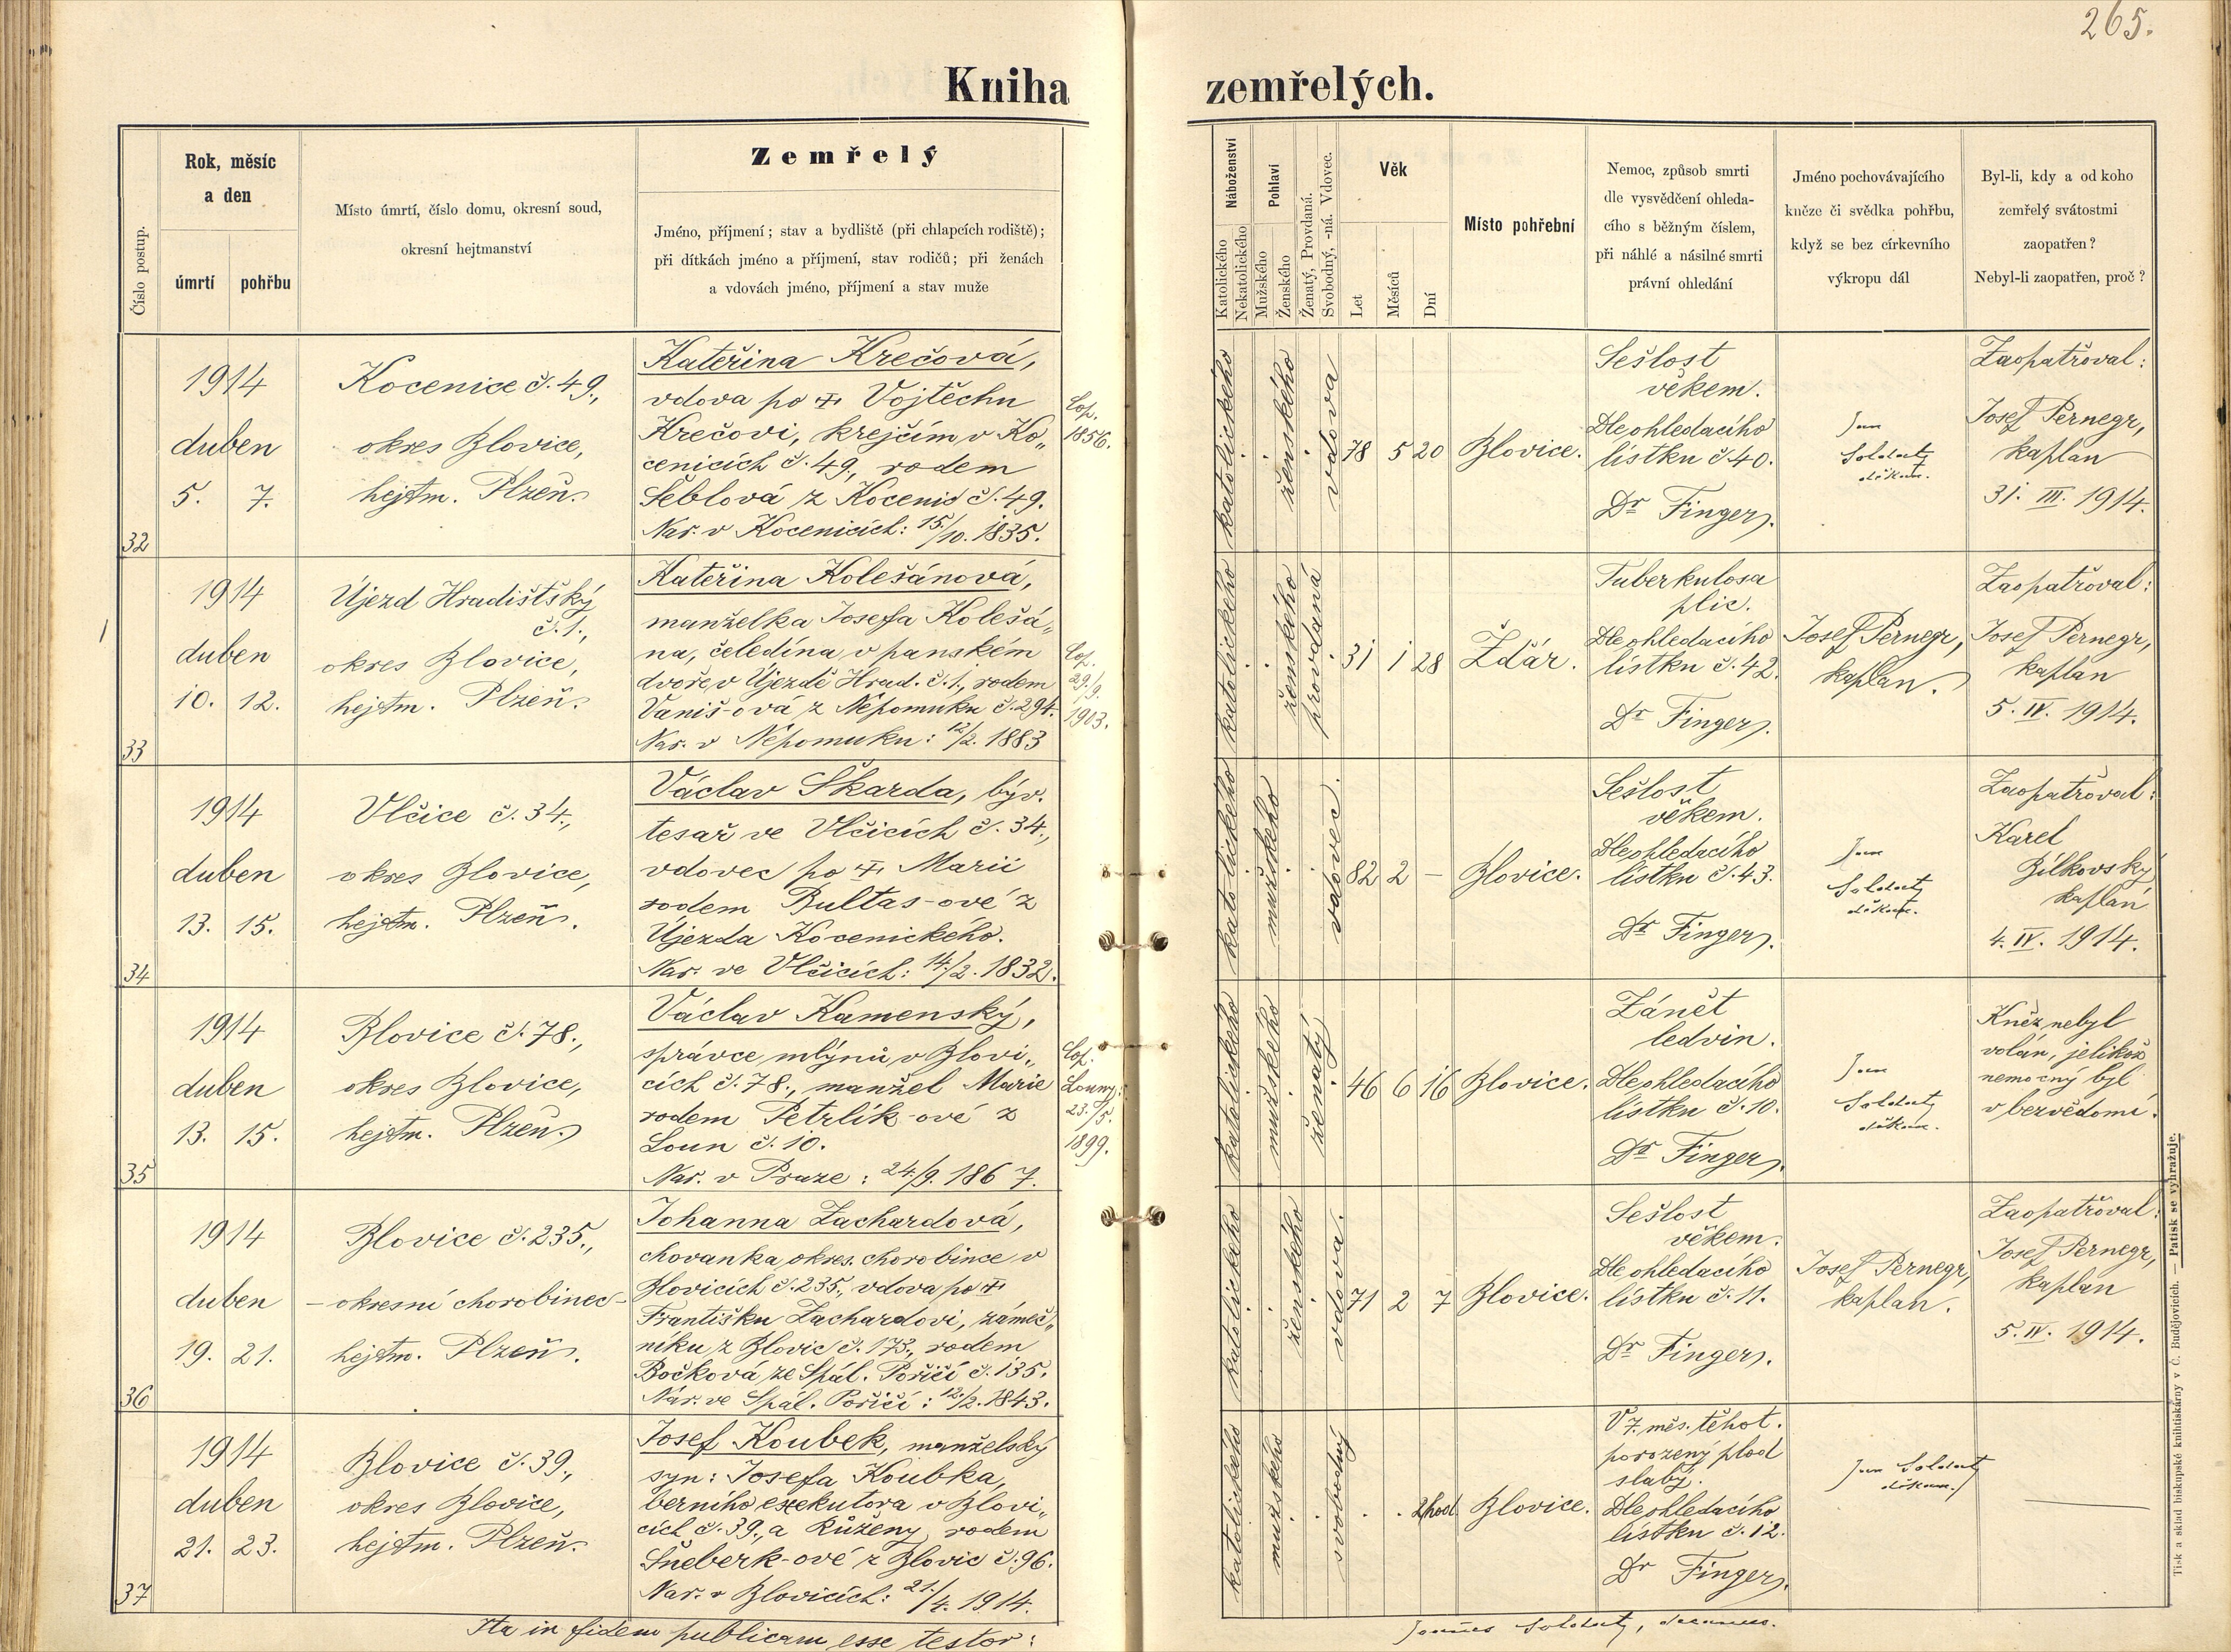 265.
Kniha zemřelých.
Číslo postup.
Rok, měsíc
a den
úmrtí
pohřbu
Místo úmrtí, číslo domu, okresní soud,
okresní hejtmanství
Zemřelý
Jméno, příjmení; stav a bydliště (při chlapcích rodiště);
při dítkách jméno a příjmení, stav rodičů; při ženách
a vdovách jméno, příjmení a stav muže
Náboženství
Katolického
Nekatolického
Pohlaví
Mužského
Ženského
Ženatý, Provdaná.
Svobodný, -ná. Vdovec.
Věk
Let
Měsíců
Dní
Místo pohřební
Nemoc, způsob smrti
dle vysvědčení ohleda-
cího s běžným číslem,
při náhlé a násilné smrti
právní ohledání
Jméno pochovávajícího
kněze či svědka pohřbu,
když se bez církevního
výkropu dál
Byl-li, kdy a od koho
zemřelý svátostmi
zaopatřen?
Nebyl-li zaopatřen, proč?
32
1914
duben
5. 7.
Kocenice č. 49.,
okres Blovice,
hejtm. Plzeň.
Kateřina Krečová,
vdova po + Vojtěchu
Krečovi, krejčím v Ko„
cenicích č. 49., rodem
Šeblová z Kocenic č. 49.
Nar. v Kocenicích: 15./10. 1835.
Cop.
1856.
katolického
ženského
vdova
78 5 20
Blovice.
Sešlost
věkem.
Dle ohledacího
lístku č. 40.
Dr Finger.
Jan
Soldát,
děkan.
Zaopatřoval:
Josef Pernegr,
kaplan
31. III. 1914.
33
1914
duben
10. 12.
Újezd Hradištský
č. 1.,
okres Blovice,
hejtm. Plzeň.
Kateřina Kolešánová,
manželka Josefa Kolešá„
na, čeledína v panském
dvoře v Újezdě Hrad. č. 1., rodem
Vaniš-ová z Nepomuku č. 294.
Nar. v Nepomuku: 12/2. 1883
Cop.
29./9.
1903.
katolického
ženského
provdaná
31 1 28
Žďár.
Tuberkulosa
plic.
Dle ohledacího
lístku č. 42.
Dr Finger.
Josef Pernegr,
kaplan.
Zaopatřoval:
Josef Pernegr,
kaplan
5. IV. 1914.
34
1914
duben
13. 15.
Vlčice č. 34.,
okres Blovice,
hejtm. Plzeň.
Václav Škarda, býv.
tesař ve Vlčicích č. 34.,
vdovec po + Marii
rodem Bultas-ové z
Újezda Kocenického.
Nar. ve Vlčicích: 14./2. 1832.
katolického
mužského
vdovec.
82 2 —
Blovice.
Sešlost
věkem.
Dle ohledacího
lístku č. 43.
Dr Finger.
Jan
Soldát,
děkan.
Zaopatřoval:
Karel
Bílkovský
kaplan
4. IV. 1914.
35
1914
duben
13. 15.
Blovice č. 78.,
okres Blovice,
hejtm. Plzeň.
Václav Kamenský,
správce mlýnů v Blovi„
cích č. 78., manžel Marie
rodem Petrlík-ové z
Loun č. 10.
Nar. v Praze: 24/9. 1867.
Cop.
Louny:
23./5.
1899.
katolického
mužského
ženatý
46 6 16
Blovice.
Zánět
ledvin.
Dle ohledacího
lístku č. 10.
Dr Finger.
Jan
Soldát,
děkan.
Kněz nebyl
volán, jelikož
nemocný byl
v bezvědomí.
36
1914
duben
19. 21.
Blovice č. 235.,
– okresní chorobinec –
hejtm. Plzeň.
Johanna Zachardová,
chovanka okres. chorobince v
Blovicích č. 235., vdova po +
Františku Zachardovi, zámeč„
níku z Blovic č. 173., rodem
Bočková ze Spál. Poříčí č. 135.
Nar. ve Spál. Poříčí: 12./2. 1843.
katolického
ženského
vdova.
71 2 7
Blovice.
Sešlost
věkem.
Dle ohledacího
lístku č. 11.
Dr Finger.
Josef Pernegr,
kaplan.
Zaopatřoval:
Josef Pernegr,
kaplan
5. IV. 1914.
37
1914
duben
21. 23.
Blovice č. 39.,
okres Blovice,
hejtm. Plzeň.
Josef Koubek, manželský
syn: Josefa Koubka,
berního exekutora v Blovi„
cích č. 39., a Růženy, rodem
Šneberk-ové z Blovic č. 96.
Nar. v Blovicích: 21./4. 1914.
katolického
mužského
svobodný
2 hod.
Blovice.
V 7. měs. těhot.
porozený plod
slabý.
Dle ohledacího
lístku č. 12.
Dr Finger.
Jan Soldát,
děkan.
Ita in fidem publicam esse testor:
Joannes Soldát, decanus.
Tisk a sklad biskupské knihtiskárny v Č. Budějovicích. — Patisk se vyhražuje.